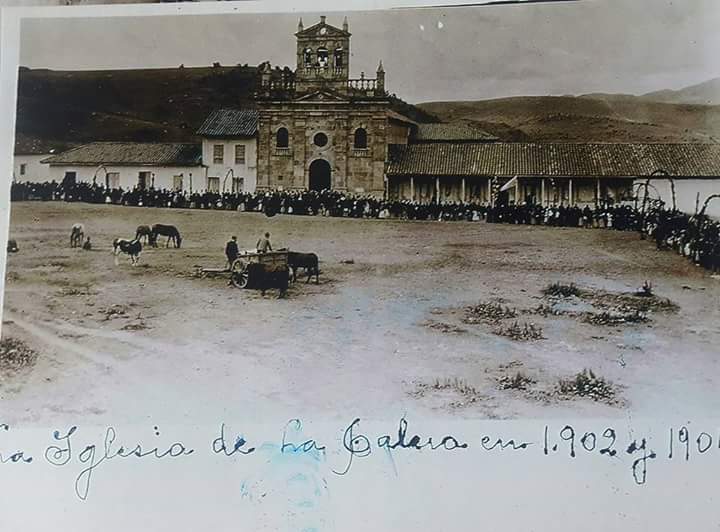 La Iglesia de La Calera en 1.902 y